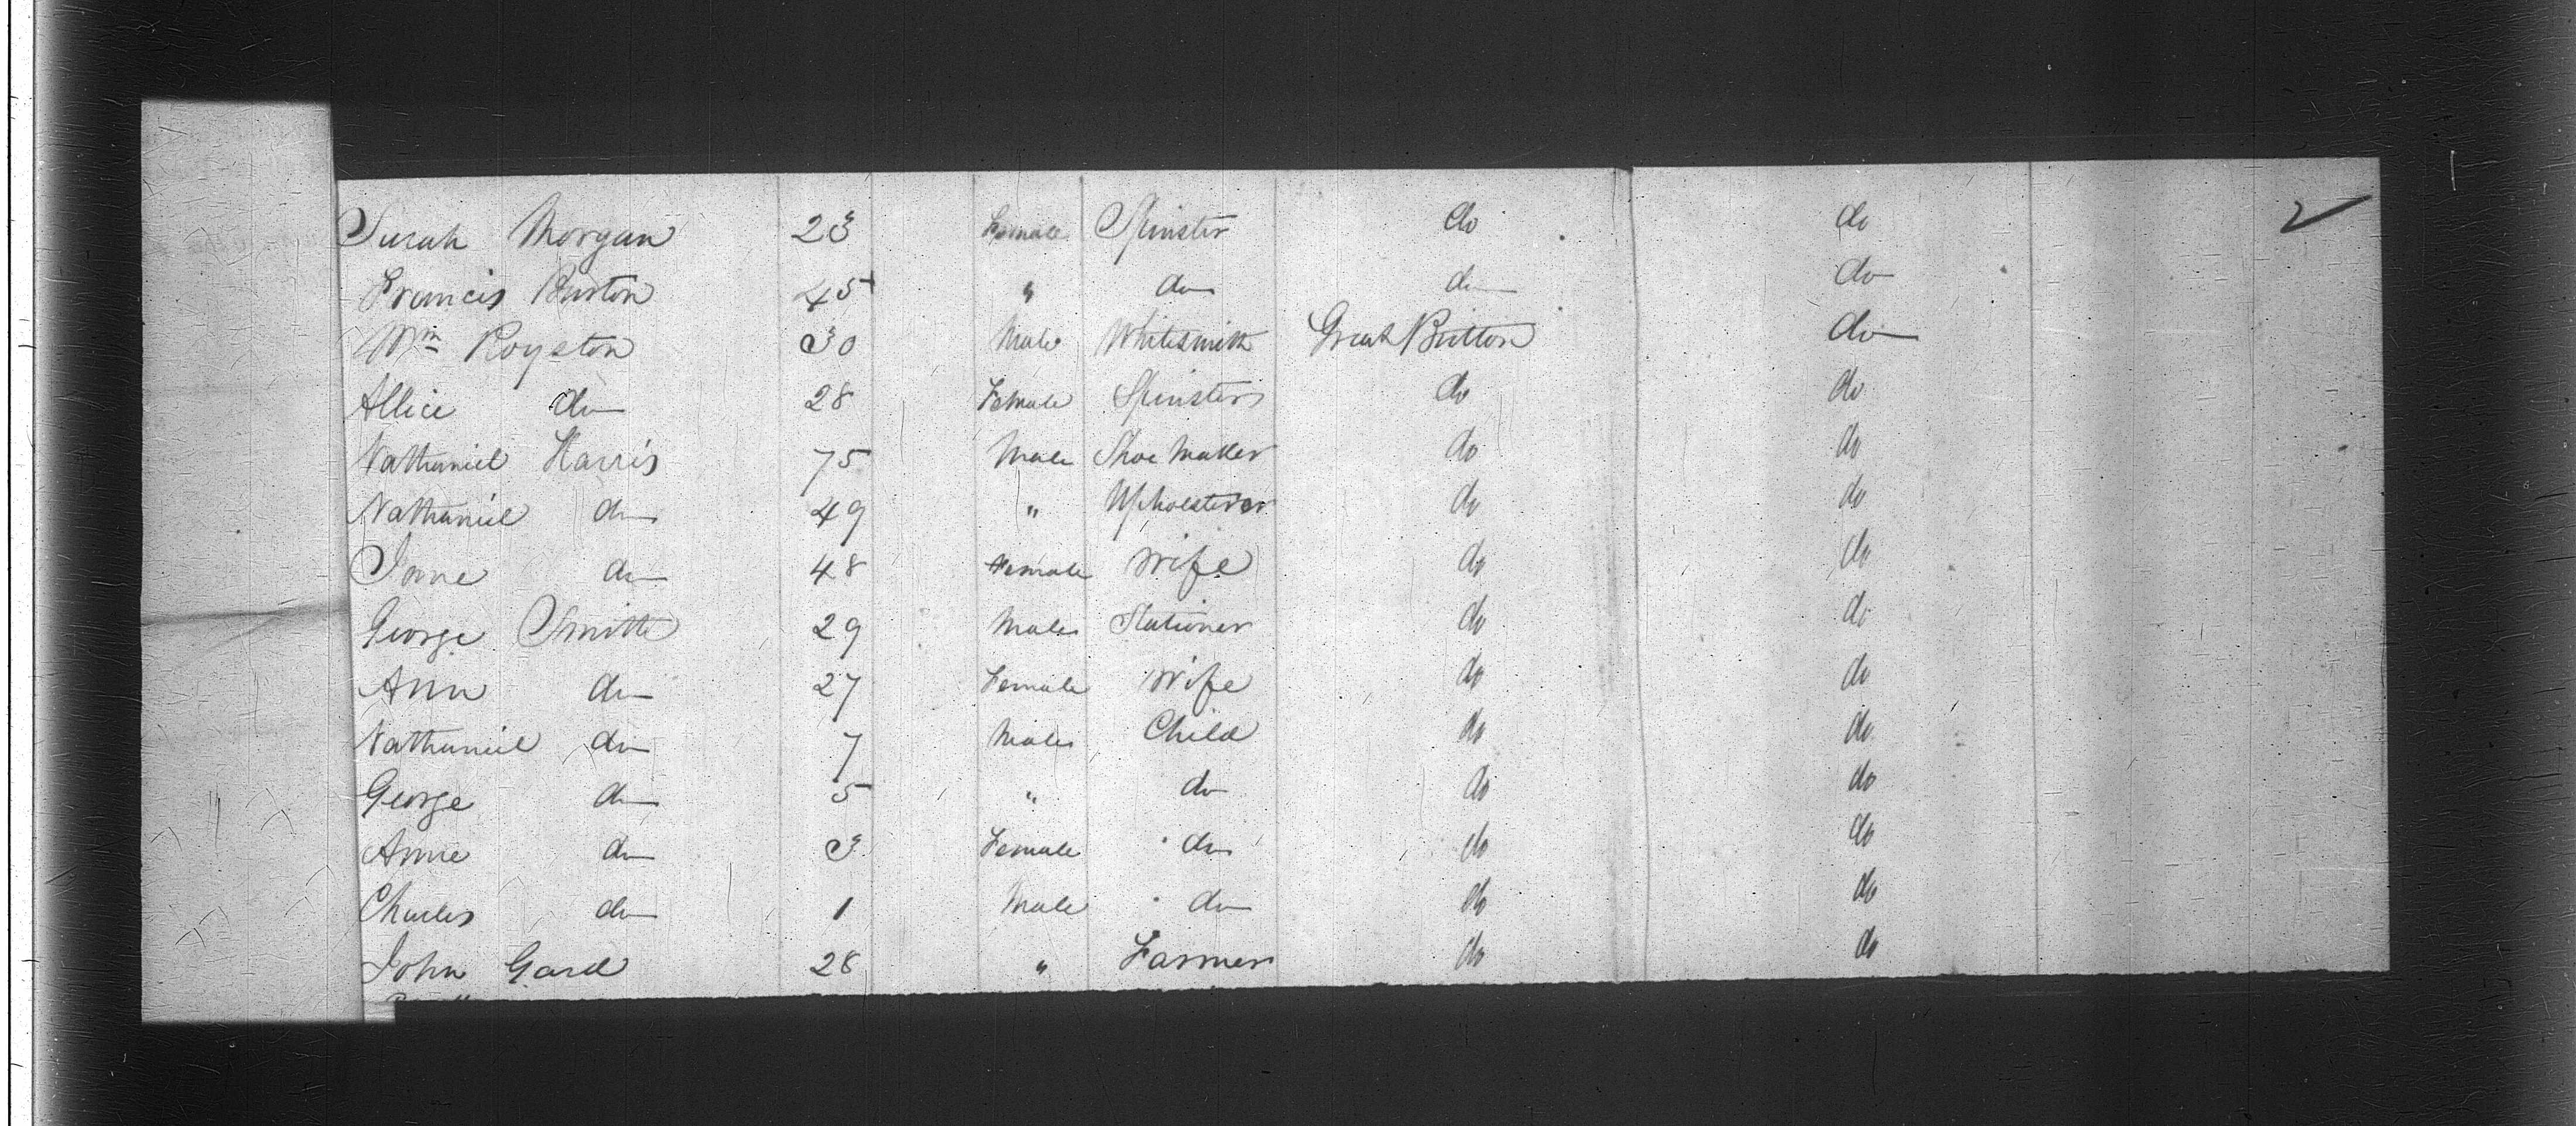 Sarah Morgan 23 Female Spinster do do
Francis Burton 45 " do do do
Wm Royston 30 Male Whitesmith Great Britton do
Allice do 28 Female Spinster do do
Nathaniel Harris 75 Male Shoe Maker do do
Nathaniel do 49 " Upholsterer do do
Jane do 48 Female Wife do do
George Smith 29 Male Stationer do do
Ann do 27 Female Wife do do
Nathaniel do 7 Male Child do do
George do 5 " do do do
Anne do 3 Female do do do
Charles do 1 Male do do do
John Gard 28 " Farmer do do